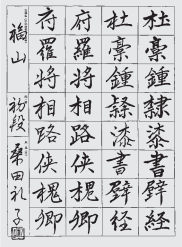 杜稾鍾隸漆書壁経
杜稾鍾隷漆書壁経
府羅将相路侠槐卿
府羅将相路侠槐卿
福山 初段 桑田礼子